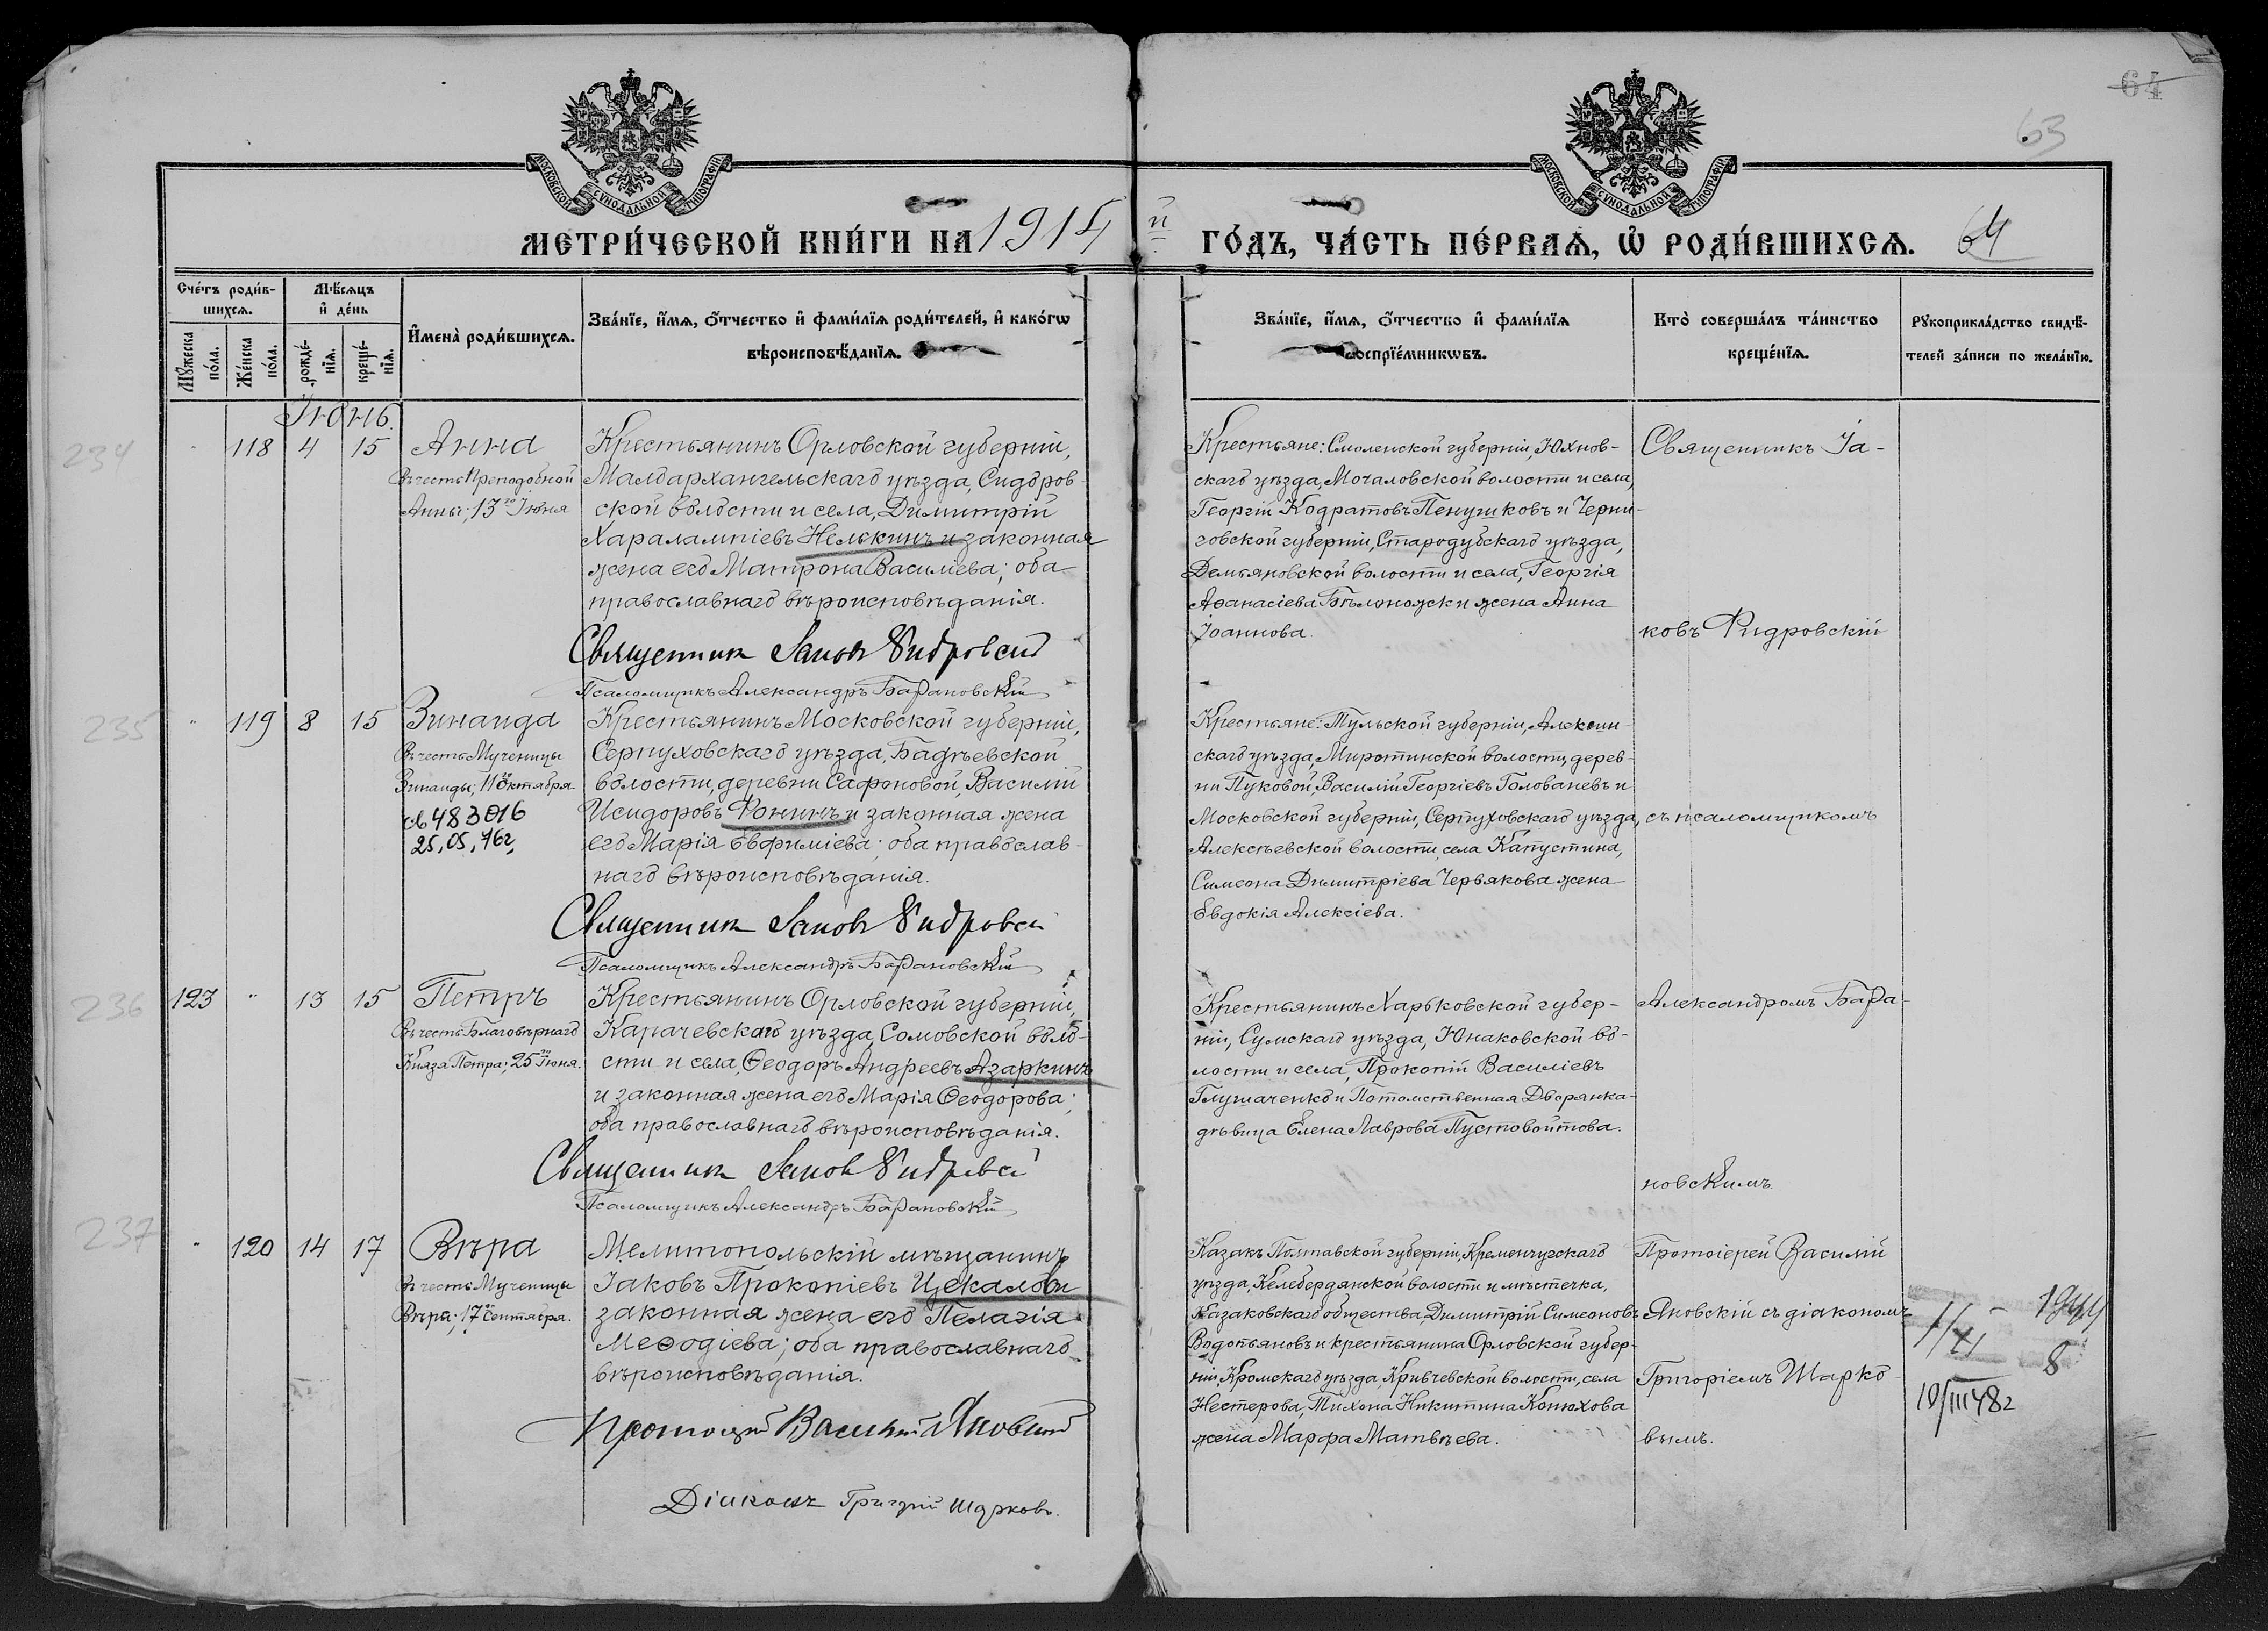 64
63
МОСКОВСКОЙ СѴНОДАЛЬНОЙ ТИПОГРАФІИ
МОСКОВСКОЙ СѴНОДАЛЬНОЙ ТИПОГРАФІИ
МЕТРИ́ЧЕСКОЙ КНИ́ГИ НА 1914 й ГО́ДЪ, ЧА́СТЬ ПЕ́РВАѦ, Ѡ҆ РОДИ́ВШИХСѦ. 64
Сче́тъ роди́в-
шихсѧ.
Мꙋжеска
по́ла.
Же́нска
по́ла.
Мѣ́сѧцъ
и҆ де́нь
рожде́-
нїѧ.
креще́-
нїѧ.
И҆мена̀ роди́вшихсѧ.
Зва́нїе, и҆́мѧ, ѻ҆́тчество и҆ фами́лїѧ роди́телей, и҆ како́гѡ
вѣроисповѣ́данїѧ.
Зва́нїе, и҆́мѧ, ѻ҆́тчество и҆ фами́лїѧ
воспрїе́мникѡвъ.
Кто̀ соверша́лъ та́инство
креще́нїѧ.
Рꙋкоприкла́дство свидѣ́-
телей за́писи по жела́нїю.
Іюнь.
234
" 118 4 15 Анна
въ честь Преподобной
Анны; 13го Іюня
Крестьянинъ Орловской губерніи,
Малоархангельскаго уѣзда, Сидоров
ской волости и села, Димитрій
Харалампіевъ Нелюкинъ и законная
жена его Матрона Василіева; оба
православнаго вѣроисповѣданія.
Священник Іаков Фидровскій
Псаломщикъ Александръ Барановскій
Крестьяне: Смоленской губерніи, Юхнов-
скаго уѣзда, Мочаловской волости и села,
Георгій Кодратовъ Пенушковъ и Черни-
говской губерніи, Стародубскаго уѣзда,
Демьяновской волости и села, Георгія
Аѳанасіева Бѣлоножск и жена Анна
Іоаннова.
Священникъ Іа-
ковъ Фидровскій
235
" 119 8 15 Зинаида
въ честь Мученицы
Зинаиды; 11го Октября.
св 483016
25,05,76г,
Крестьянинъ Московской губерніи,
Серпуховскаго уѣзда, Бадѣевской
волости, деревни Сафоновой, Василій
Исидоровъ Фонинъ и законная жена
его Марія Евфиміева; оба православ-
наго вѣроисповѣданія.
Священник Іаков Фидровскій
Псаломщикъ Александръ Барановскій
Крестьяне: Тульской губерніи, Алексин-
скаго уѣзда, Миротинской волости, дерев-
ни Пуковой, Василій Георгіевъ Голованевъ и
Московской губерніи, Серпуховскаго уѣзда,
Алексѣевской волости, села Капустина,
Симеона Димитріева Червякова жена
Евдокія Алексіева.
съ псаломщикомъ
236
123 " 13 15 Петръ
въ честь Благовѣрнаго
Князя Петра; 25го Іюня.
Крестьянинъ Орловской губерніи,
Карачевскаго уѣзда, Сомовской воло-
сти и села, Ѳеодоръ Андреевъ Азаркинъ
и законная жена его Марія Ѳеодорова;
оба православнаго вѣроисповѣданія.
Священник Іаков Фидровскій
Псаломщикъ Александръ Барановскій
Крестьянинъ Харьковской губер-
ніи, Сумскаго уѣзда, Юнаковской во-
лости и села, Прокопій Василіевъ
Глушаченко и Потомственная Дворянка
дѣвица Елена Лаврова Пустовойтова.
Александромъ Бара-
новскимъ.
237
" 120 14 17 Вѣра
въ честь Мученицы
Вѣры; 17го Сентября.
Мелитопольскій мѣщанинъ
Іаковъ Прокопіевъ Цекало и
законная жена его Пелагія
Меѳодіева; оба православнаго
вѣроисповѣданія.
Протоіерей Василій Яновскій
Діаконъ Григорій Шарковъ.
Казакъ Полтавской губерніи, Кременчугскаго
уѣзда, Келебердянской волости и мѣстечка,
Казаковскаго общества, Димитрій Симеоновъ
Водопьяновъ и крестьянина Орловской губер-
ніи, Кромскаго уѣзда, Кривчевской волости, села
Нестерова, Тихона Никитина Конюхова
жена Марфа Матвѣева.
Протоіерей Василій
Яновскій съ діакономъ
Григоріемъ Шарко
вымъ.
1/XI 1944
8
10/III 48г